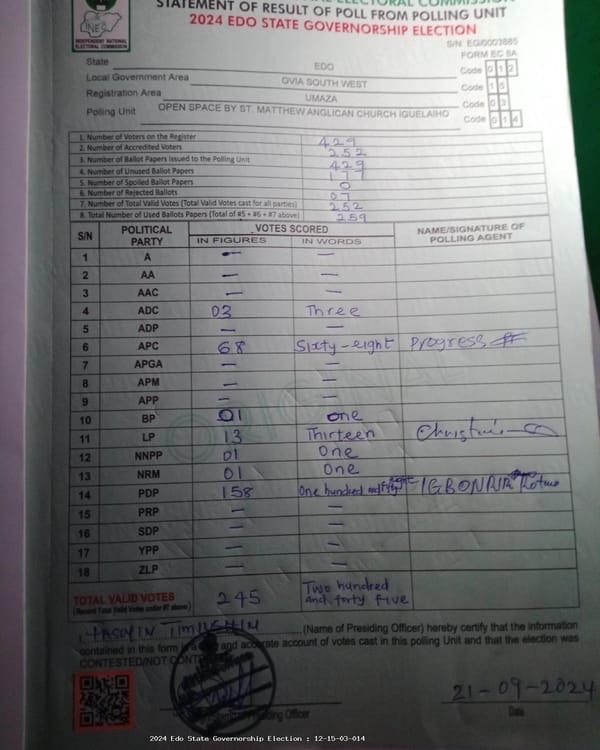 STATEMENT OF RESULT OF POLL FROM POLLING UNIT
2024 EDO STATE GOVERNORSHIP ELECTION
INEC
INDEPENDENT NATIONAL
ELECTORAL COMMISSION
S/N: EG/0003885
FORM EC 8A
State EDO Code 0 1 2
Local Government Area OVIA SOUTH WEST Code 1 5
Registration Area UMAZA Code 0 3
Polling Unit OPEN SPACE BY ST. MATTHEW ANGLICAN CHURCH IGUELAIHO Code 0 1 4
1. Number of Voters on the Register 429
2. Number of Accredited Voters 252
3. Number of Ballot Papers Issued to the Polling Unit 429
4. Number of Unused Ballot Papers 177
5. Number of Spoiled Ballot Papers 0
6. Number of Rejected Ballots 07
7. Number of Total Valid Votes (Total Valid Votes cast for all parties) 252
8. Total Number of Used Ballots Papers (Total of #5 + #6 + #7 above) 259
S/N POLITICAL PARTY VOTES SCORED NAME/SIGNATURE OF POLLING AGENT
IN FIGURES IN WORDS
1 A — —
2 AA — —
3 AAC — —
4 ADC 03 Three
5 ADP — —
6 APC 68 Sixty-eight Progress
7 APGA — —
8 APM — —
9 APP — —
10 BP 01 one
11 LP 13 Thirteen
12 NNPP 01 One
13 NRM 01 One
14 PDP 158 One hundred and Fifty eight
15 PRP — —
16 SDP — —
17 YPP — —
18 ZLP — —
ORIGINAL
TOTAL VALID VOTES 245 Two hundred and forty five
(Record Total Valid Votes under #7 above)
I, (Name of Presiding Officer) hereby certify that the information
contained in this form is a and accurate account of votes cast in this polling Unit and that the election was
CONTESTED/NOT
21-09-2024
Presiding Officer Date
2024 Edo State Governorship Election : 12-15-03-014